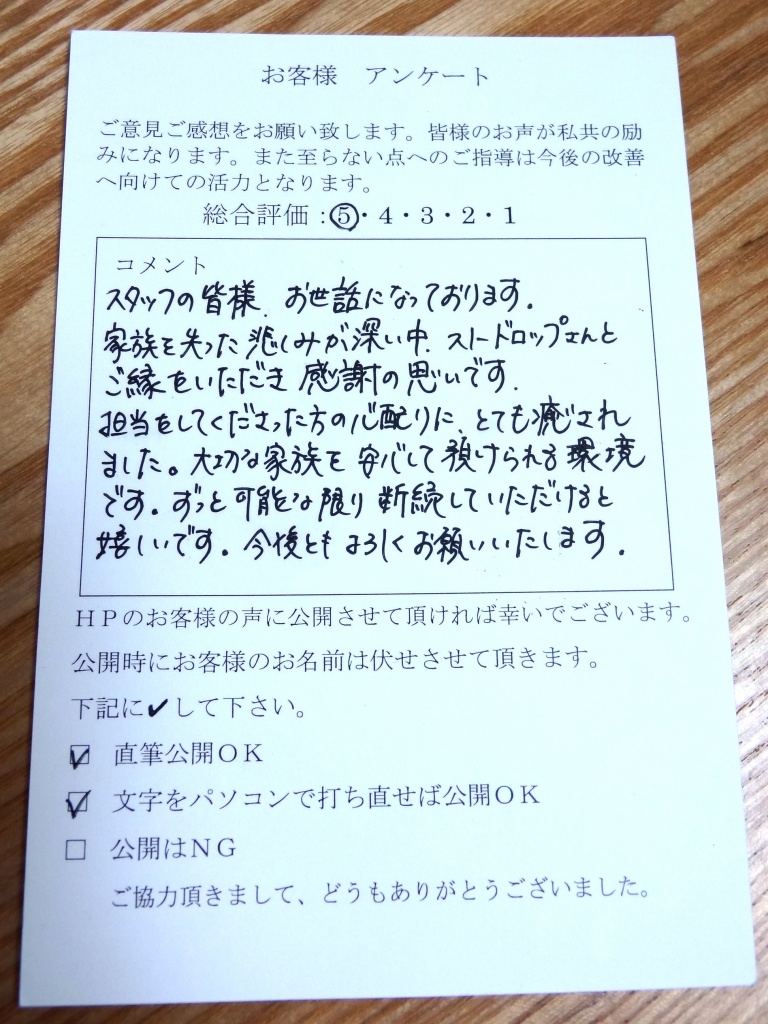 お客様　アンケート
ご意見ご感想をお願い致します。皆様のお声が私共の励
みになります。また至らない点へのご指導は今後の改善
へ向けての活力となります。
総合評価：⑤・４・３・２・１
コメント
スタッフの皆様、お世話になっております。
家族を失った悲しみが深い中、ストードロップさんと
ご縁をいただき感謝の思いです。
担当をしてくださった方の心配りに、とても癒され
ました。大切な家族を安心して預けられる環境
です。ずっと可能な限り断続していただけると
嬉しいです。今後ともよろしくお願いいたします。
ＨＰのお客様の声に公開させて頂ければ幸いでございます。
公開時にお客様のお名前は伏せさせて頂きます。
下記に✔して下さい。
☑　直筆公開ＯＫ
☑　文字をパソコンで打ち直せば公開ＯＫ
□　公開はＮＧ
ご協力頂きまして、どうもありがとうございました。